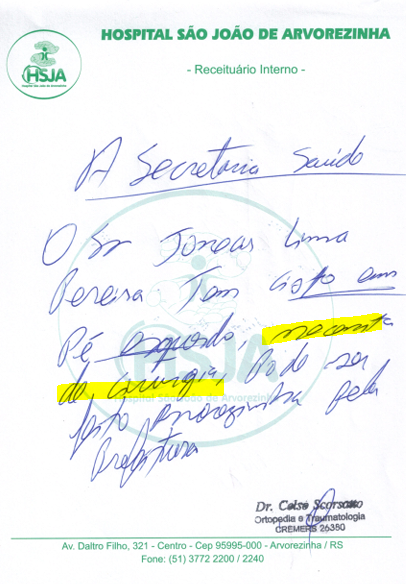 HOSPITAL SÃO JOÃO DE ARVOREZINHA
HSJA
Hospital São João de Arvorezinha
- Receituário Interno -
A Secretaria Saúde
O Sr Joneas Lima
Pereira Tem cisto em
Pé esquerdo, necessita
de cirurgia, Pode ser
feito Arvorezinha pela
Prefeitura
HSJA
Hospital São João de Arvorezinha
Dr. Celso Scorsatto
Ortopedia e Traumatologia
CREMERS 26380
Av. Daltro Filho, 321 - Centro - Cep 95995-000 - Arvorezinha / RS
Fone: (51) 3772 2200 / 2240